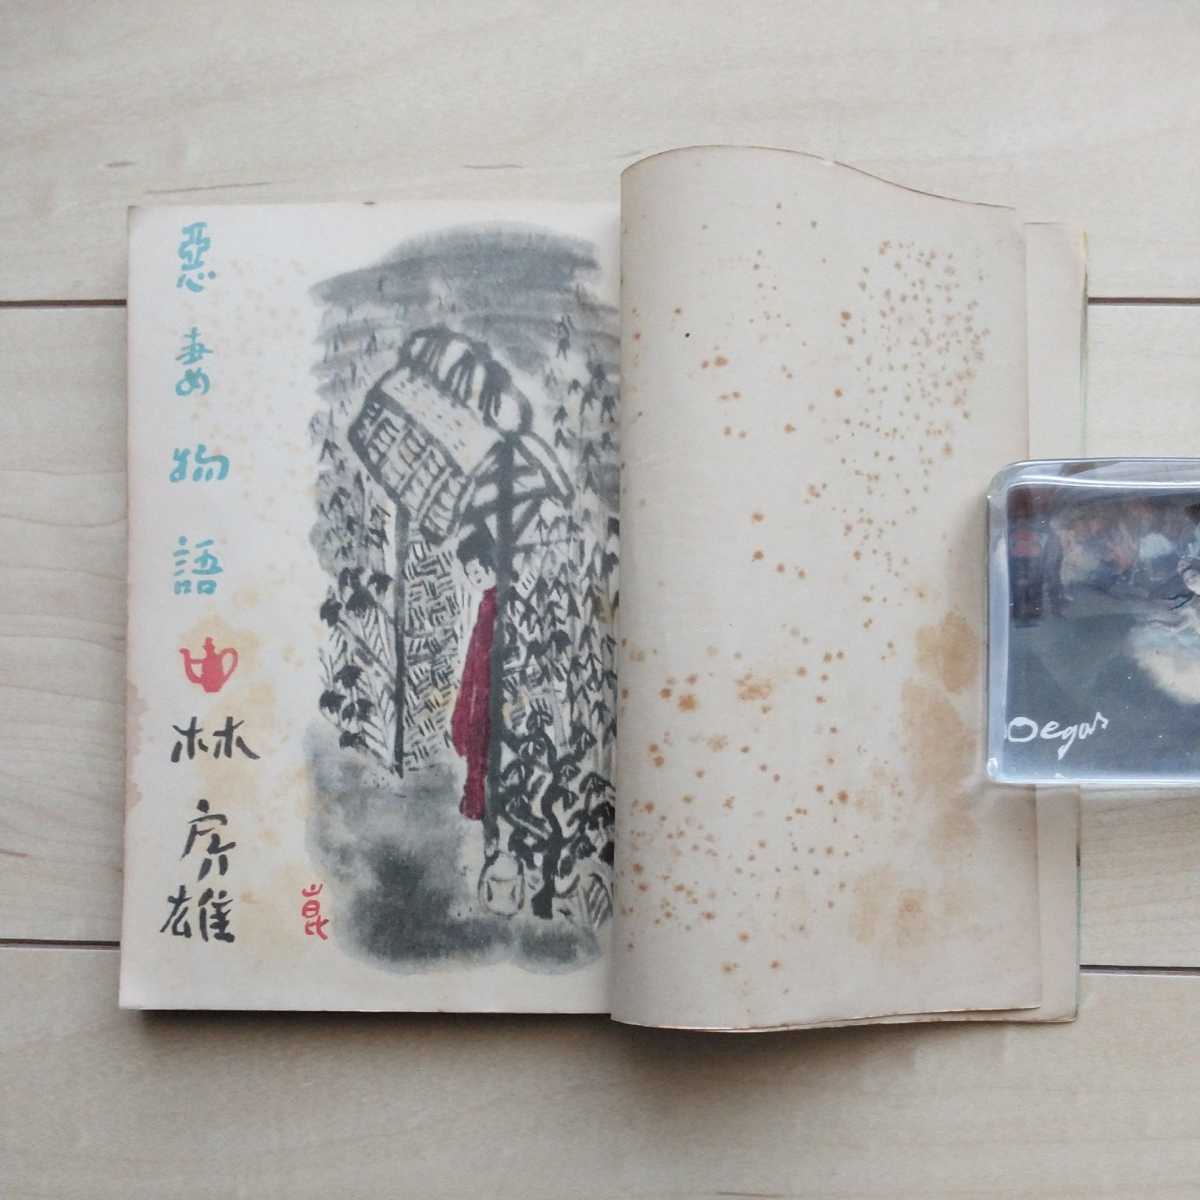 惡妻物語
林房雄
崑
Degas